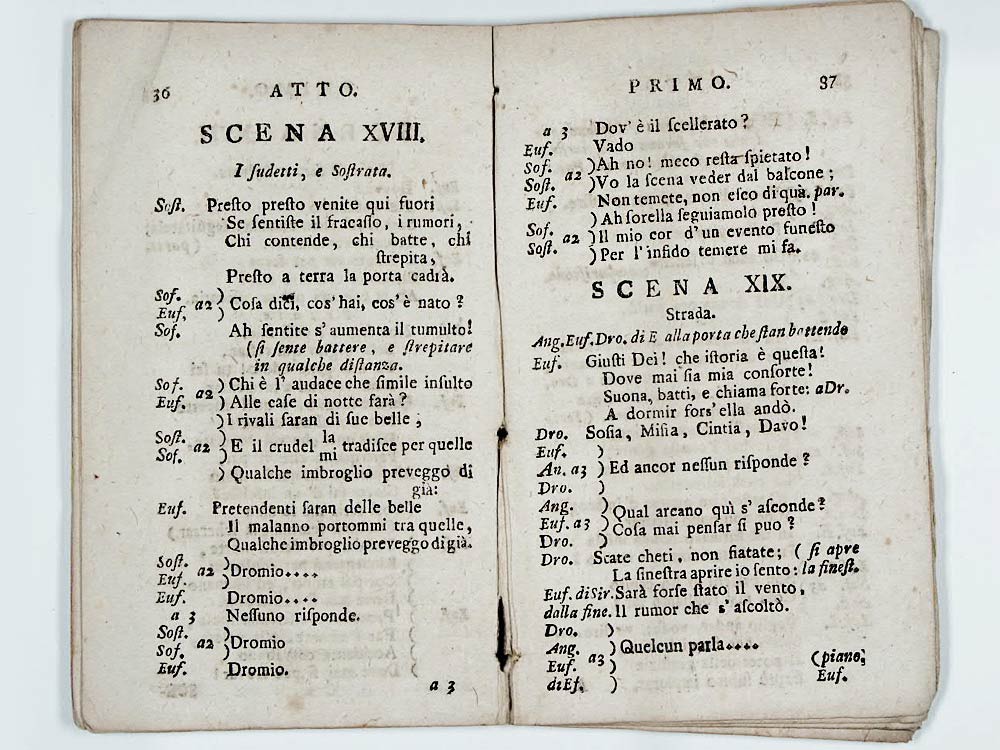 36 ATTO.
SCENA XVIII.
I ſudetti, e Soſtrata.
Soſt. Preſto preſto venite qui fuori
Se ſentiſte il fracaſſo, i rumori,
Chi contende, chi batte, chi
ſtrepita,
Preſto a terra la porta cadrà.
Sof. )
a2 Coſa dici, cos'hai, cos'è nato?
Euf. )
Sof. Ah ſentite s'aumenta il tumulto!
(ſi ſente battere, e ſtrepitare
in qualche diſtanza.
Sof. ) Chi è l'audace che ſimile inſulto
a2
Euf. ) Alle caſe di notte farà?
) I rivali ſaran di ſue belle;
Soſt. la
a2 ) E il crudel tradiſce per quelle
Sof. mi
) Qualche imbroglio preveggo di
già:
Euf. Pretendenti ſaran delle belle
Il malanno portommi tra quelle,
Qualche imbroglio preveggo di già.
Soſt. )
a2 Dromio....
Euf. )
Euf. Dromio....
a 3 Neſſuno riſponde.
Soſt. )
a2 Dromio
Sof. )
Euf. Dromio.
a 3
PRIMO. 37
a 3 Dov'è il ſcellerato?
Euf. Vado
Sof. ) Ah no! meco reſta ſpietato!
a2
Soſt. ) Vo la ſcena veder dal balcone;
Euf. Non temete, non eſco di quà. par.
) Ah ſorella ſeguiamolo preſto!
Sof.
a2 ) Il mio cor d'un evento funeſto
Soſt.
) Per l'infido temere mi fa.
SCENA XIX.
Strada.
Ang. Euf. Dro. di E alla porta che ſtan battendo
Euf. Giuſti Dei! che iſtoria è queſta!
Dove mai ſia mia conſorte!
Suona, batti, e chiama forte: a Dr.
A dormir forſ'ella andò.
Dro. Soſia, Miſia, Cintia, Davo!
Euf. )
An. a3 ) Ed ancor neſſun riſponde?
Dro. )
Ang. ) Qual arcano quì s'aſconde?
Euf. a3
Dro. ) Coſa mai penſar ſi puo?
Dro. State cheti, non fiatate; (ſi apre
La fineſtra aprire io ſento: la fineſt.
Euf. di Sir. Sarà forſe ſtato il vento,
dalla fine. Il rumor che s'aſcoltò.
Dro. )
Ang. ) Quelcun parla....
a3
Euf. ) (piano;
di Ef. ) Euf.